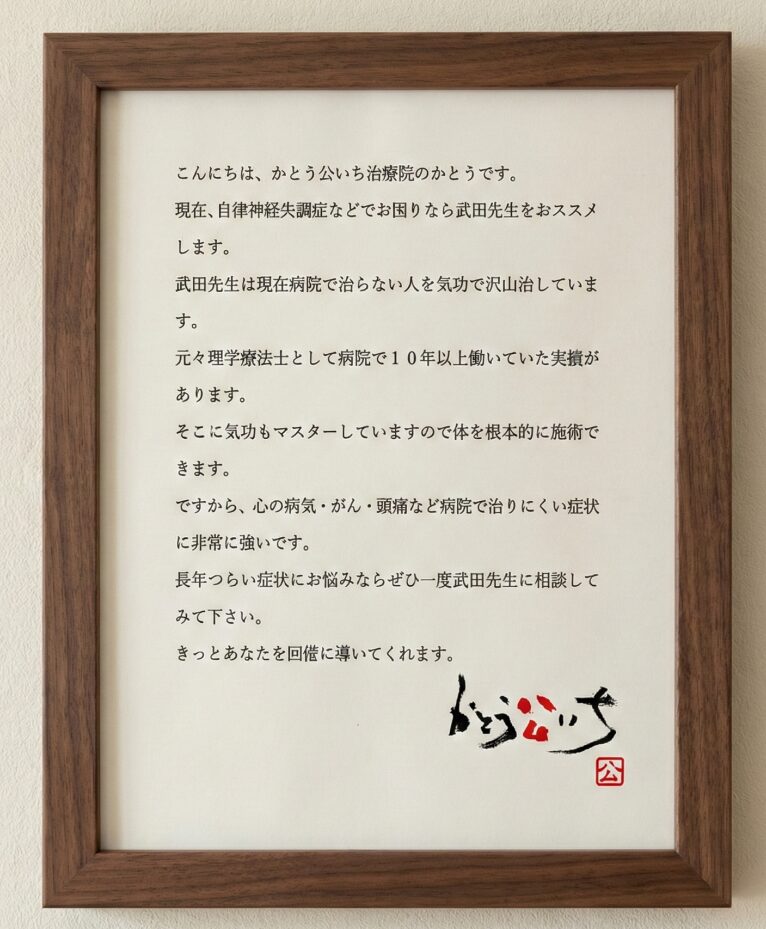 こんにちは、かとう公いち治療院のかとうです。
現在、自律神経失調症などでお困りなら武田先生をおススメ
します。
武田先生は現在病院で治らない人を気功で沢山治していま
す。
元々理学療法士として病院で１０年以上働いていた実績が
あります。
そこに気功もマスターしていますので体を根本的に施術で
きます。
ですから、心の病気・がん・頭痛など病院で治りにくい症状
に非常に強いです。
長年つらい症状にお悩みならぜひ一度武田先生に相談して
みて下さい。
きっとあなたを回僐に導いてくれます。
かとう公いち
公